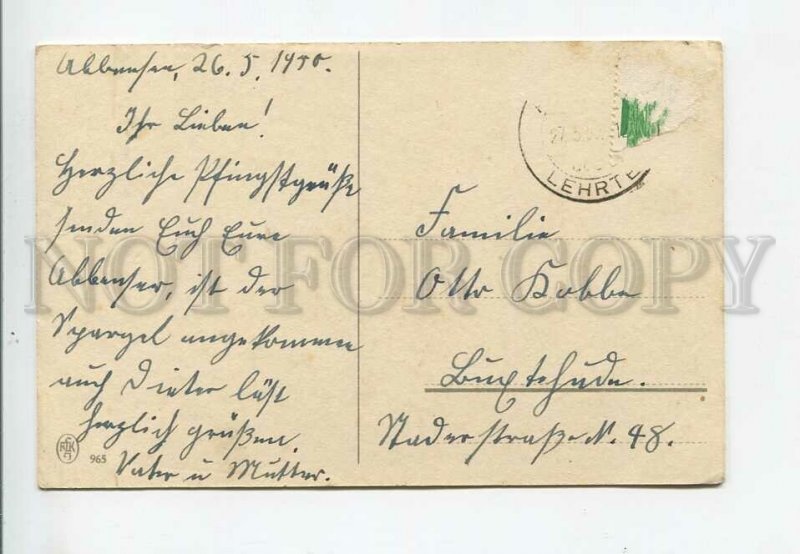 Abbensen, 26.5.1950.
Ihr Lieben!
Herzliche Pfingstgrüße
senden Euch Eure
Abbenser, ist der
Spargel angekommen
auch Dieter läst
herzlich grüßen.
Vater u Mutter.
965
27.5.5
LEHRTE
Familie
Otto Kobbe
Buxtehude.
Staderstraße N. 48.
NOT FOR COPY